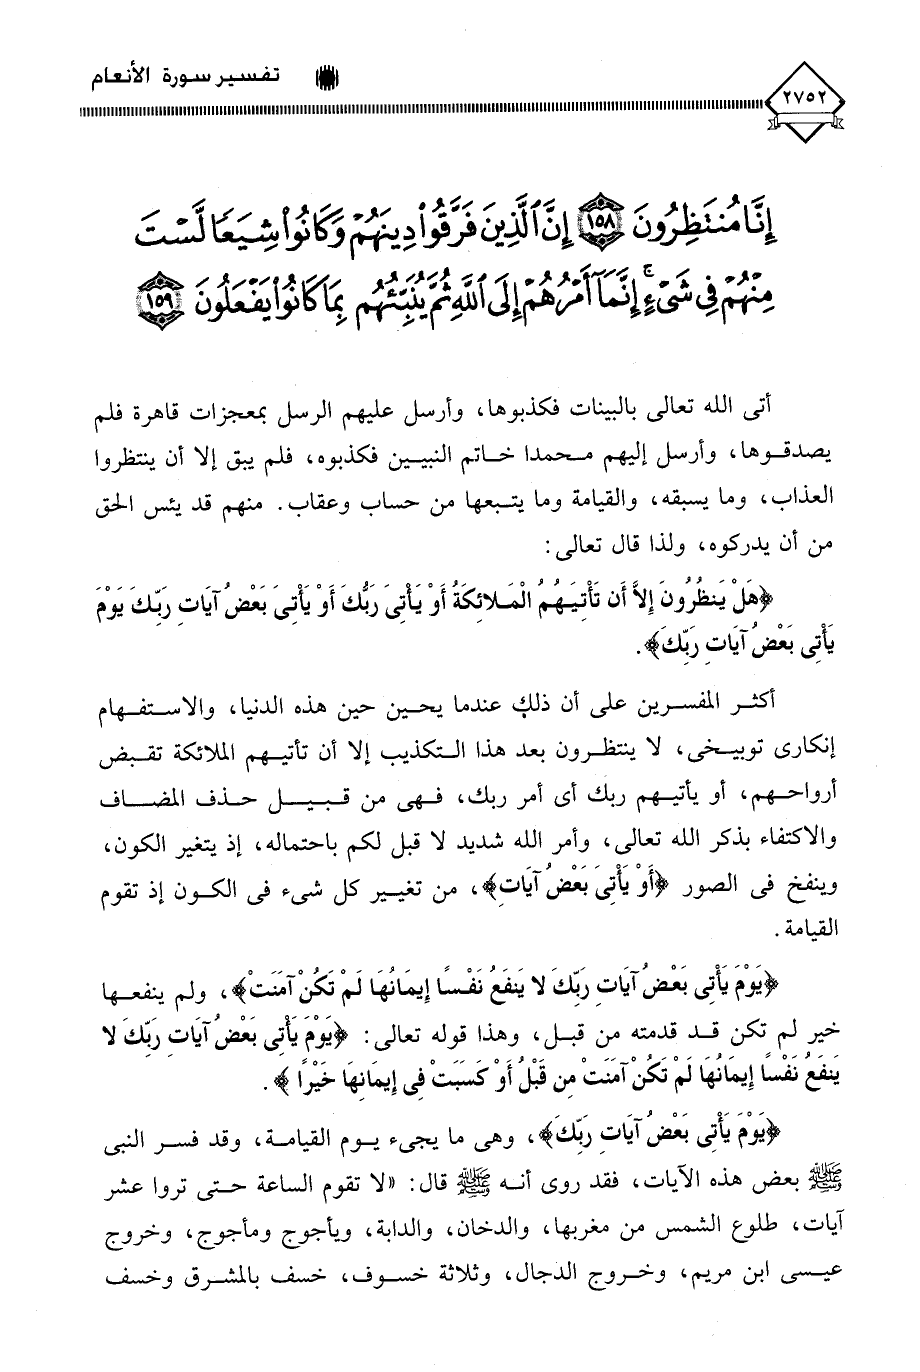 تفسير سورة الأنعام
٢٧٥٢
إِنَّا مُنتَظِرُونَ ١٥٨ إِنَّ ٱلَّذِينَ فَرَّقُوا۟ دِينَهُمْ وَكَانُوا۟ شِيَعًا لَّسْتَ
مِنْهُمْ فِى شَىْءٍ ۚ إِنَّمَآ أَمْرُهُمْ إِلَى ٱللَّهِ ثُمَّ يُنَبِّئُهُم بِمَا كَانُوا۟ يَفْعَلُونَ ١٥٩
أتى الله تعالى بالبينات فكذبوها، وأرسل عليهم الرسل بمعجزات قاهرة فلم
يصدقوها، وأرسل إليهم محمدا خاتم النبيين فكذبوه، فلم يبق إلا أن ينتظروا
العذاب، وما يسبقه، والقيامة وما يتبعها من حساب وعقاب. منهم قد يئس الحق
من أن يدركوه، ولذا قال تعالى:
﴿هَلْ يَنظُرُونَ إِلاَّ أَن تَأْتِيَهُمُ الْمَلائِكَةُ أَوْ يَأْتِىَ رَبُّكَ أَوْ يَأْتِىَ بَعْضُ آيَاتِ رَبِّكَ يَوْمَ
يَأْتِى بَعْضُ آيَاتِ رَبِّكَ﴾.
أكثر المفسرين على أن ذلك عندما يحين حين هذه الدنيا، والاستفهام
إنكارى توبيخى، لا ينتظرون بعد هذا التكذيب إلا أن تأتيهم الملائكة تقبض
أرواحهم، أو يأتيهم ربك أى أمر ربك، فهى من قبيل حذف المضاف
والاكتفاء بذكر الله تعالى، وأمر الله شديد لا قبل لكم باحتماله، إذ يتغير الكون،
وينفخ فى الصور ﴿أَوْ يَأْتِىَ بَعْضُ آيَاتِ﴾، من تغيير كل شىء فى الكون إذ تقوم
القيامة.
﴿يَوْمَ يَأْتِى بَعْضُ آيَاتِ رَبِّكَ لا يَنفَعُ نَفْسًا إِيمَانُهَا لَمْ تَكُنْ آمَنَتْ﴾، ولم ينفعها
خير لم تكن قد قدمته من قبل، وهذا قوله تعالى: ﴿يَوْمَ يَأْتِى بَعْضُ آيَاتِ رَبِّكَ لا
يَنفَعُ نَفْسًا إِيمَانُهَا لَمْ تَكُنْ آمَنَتْ مِن قَبْلُ أَوْ كَسَبَتْ فِى إِيمَانِهَا خَيْرًا﴾.
﴿يَوْمَ يَأْتِى بَعْضُ آيَاتِ رَبِّكَ﴾، وهى ما يجىء يوم القيامة، وقد فسر النبى
ﷺ بعض هذه الآيات، فقد روى أنه ﷺ قال: «لا تقوم الساعة حتى تروا عشر
آيات، طلوع الشمس من مغربها، والدخان، والدابة، ويأجوج ومأجوج، وخروج
عيسى ابن مريم، وخروج الدجال، وثلاثة خسوف، خسف بالمشرق وخسف